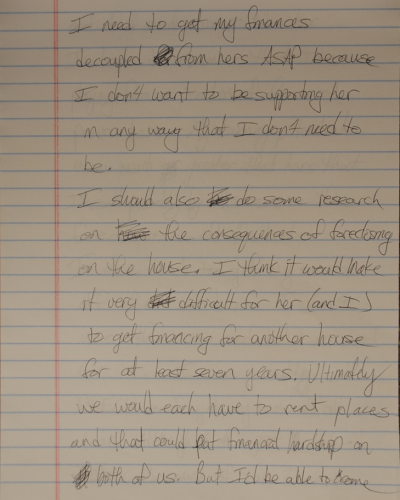 I need to get my finances
decoupled from hers ASAP because
I don4 want to be supporting her
in any way that I don4 need to
be.
I should also do some research
on the consequences of foreclosing
on the house. I think it would make
it very difficult for her (and I)
to get financing for another house
for at least seven years. Ultimately
we would each have to rent places
and that could put financial hardship on
both of us. But I'd be able to